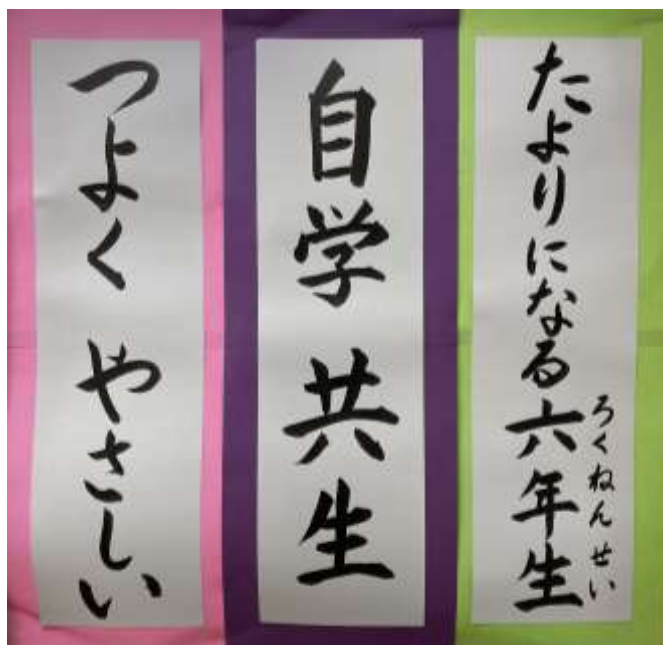 たよりになる六年生
ろくねんせい
自学 共生
つよく やさしい